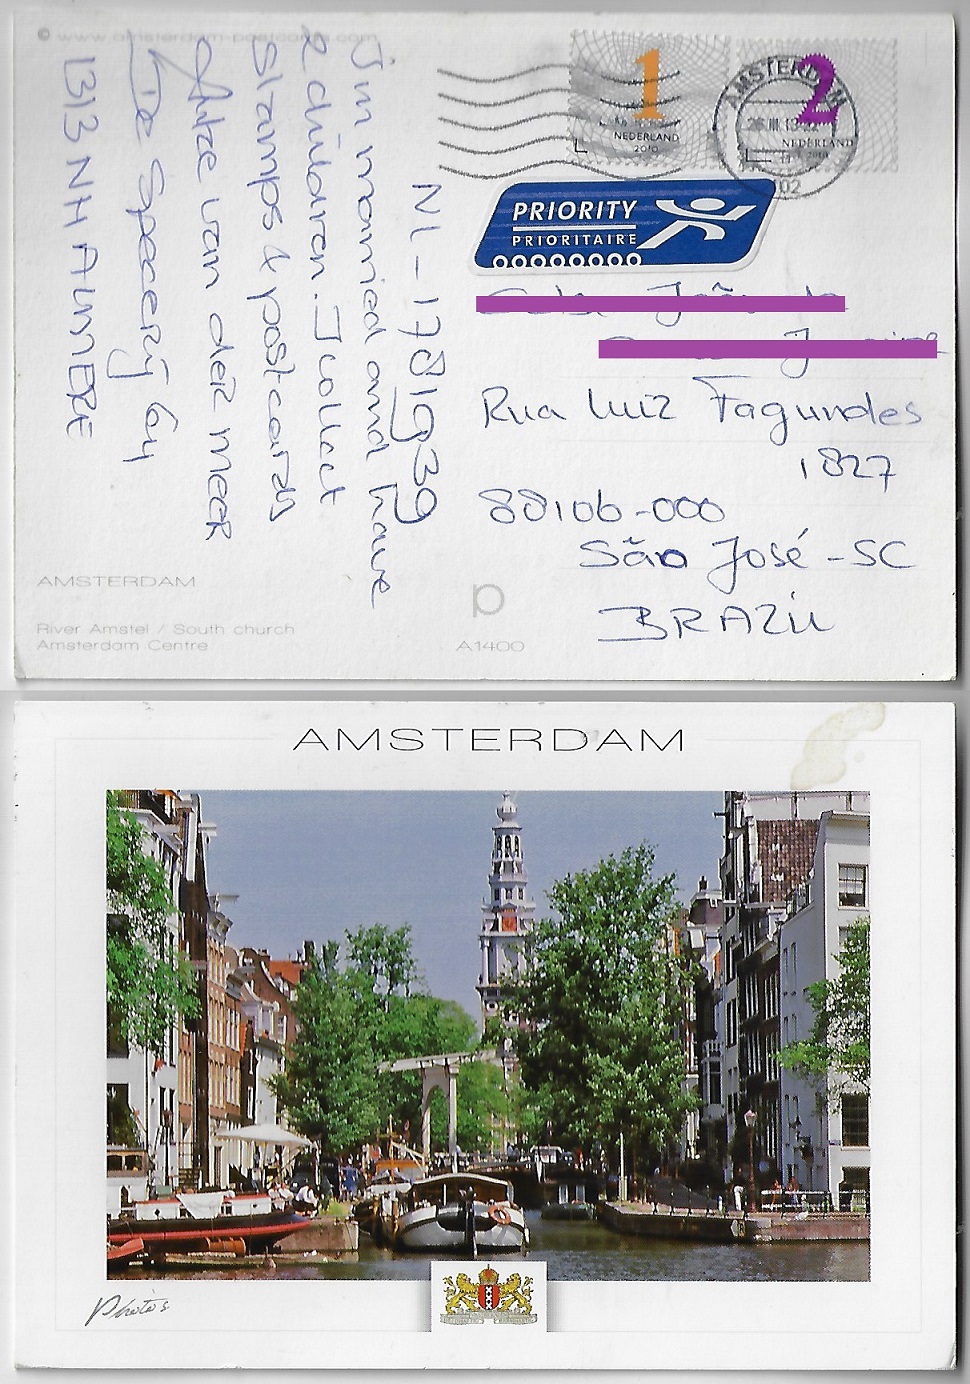 © www.amsterdam-postcards.com
1
NEDERLAND
2010
2
NEDERLAND
2010
AMSTERDAM
26 III 13
PRIORITY
PRIORITAIRE
NL-1781939
I'm married and have
2 children. I collect
Stamps & postcards
van der Meer
De Specerij 64
1313 NH ALMERE
Rua Luiz Fagundes
1827
88106-000
São José - SC
BRAZIL
AMSTERDAM
River Amstel / South church
Amsterdam Centre
p
A1400
AMSTERDAM
Photo's